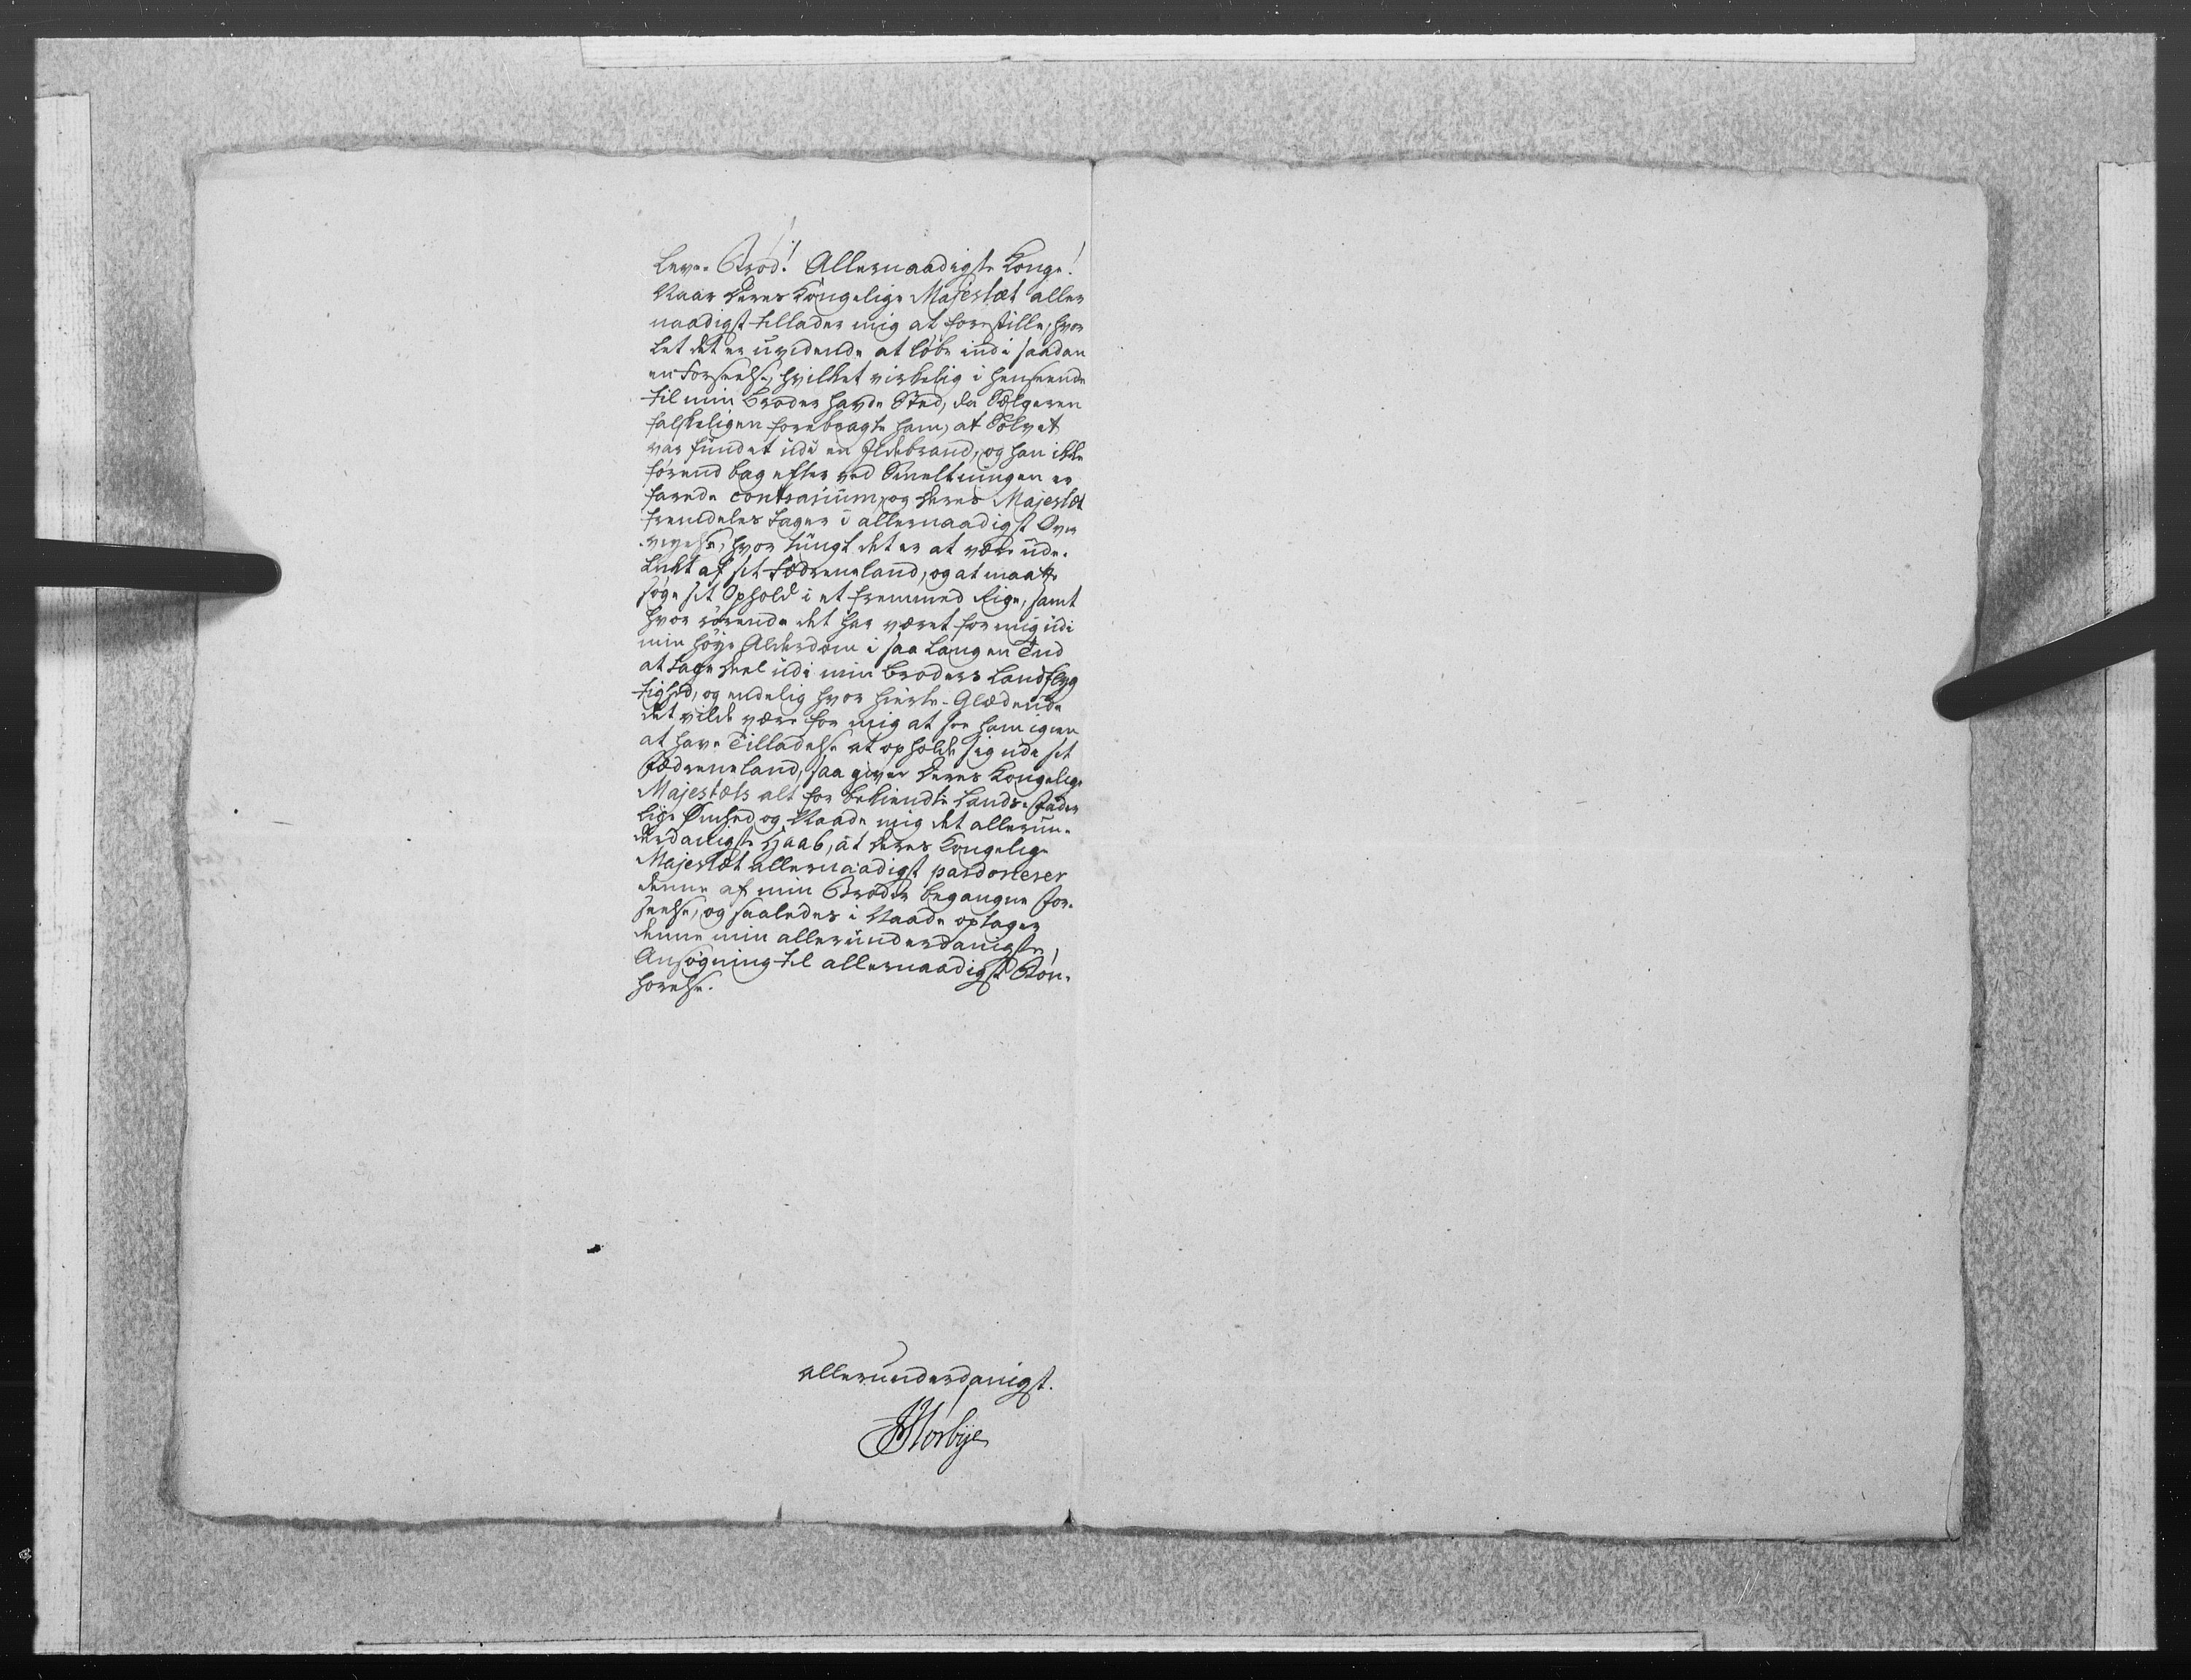 Leve-Brød! Allernaadigste Konge!
Naar Deres Kongelige Majestæt aller
naadigst tillader mig at forestille, hvor
let det er uvidende at løbe ind i saadan
en Forseelse, hvilket virkelig i henseende
til min Broder havde Sted, da Sælgeren
falskeligen forebragte ham, at Sølvet
var fundet udi en Ildebrand, og han ikke
førend bag efter ved Smeltningen er
farede contrarium, og Deres Majestæt
fremdeles tager i allernaadigst Over
veyelse, hvor tungt det er at være ude-
lukt af sit Fædreneland, og at maatte
søge sit Ophold i et fremmed Rige, samt
hvor rørende det har været for mig udi
min høye Alderdom i saa lang en Tiid
at tage Deel udi min Broders Landflyg
tighed, og endelig hvor hierte-Glædende
det vilde være for mig at see ham igien
at have Tilladelse at opholde sig udi sit
Fædreneland, saa giver Deres Kongelige
Majestæts alt for bekiendte Lands-Fader
lige Ømhed og Naade mig det allerun-
derdanigste Haab, at Deres Kongelige
Majestæt allernaadigst pardonerer
denne af min Broder begangne For-
seelse, og saaledes i Naade optager
denne min allerunderdanigste
Ansøgning til allernaadigst Bøn-
hørelse.
allerunderdanigst.
Morbye